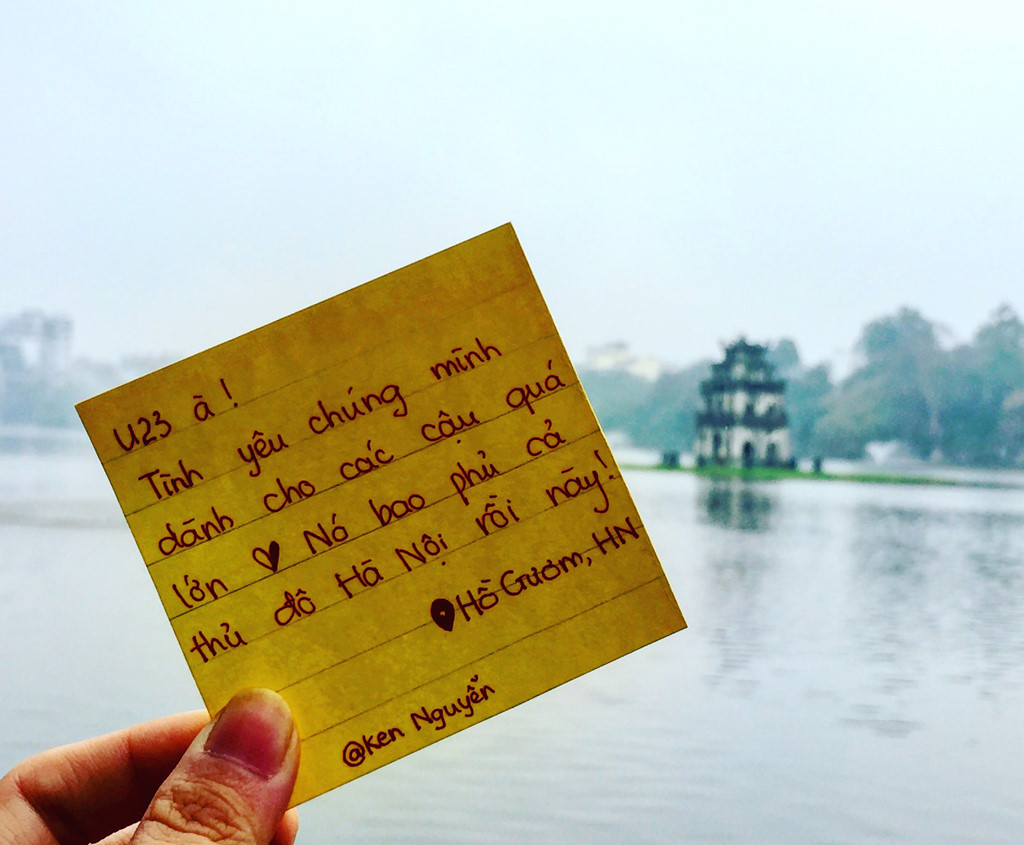 U23 à!
Tình yêu chúng mình
dành cho các cậu quá
lớn ♥ Nó bao phủ cả
thủ đô Hà Nội rồi này!
Hồ Gươm, HN
@Ken Nguyễn